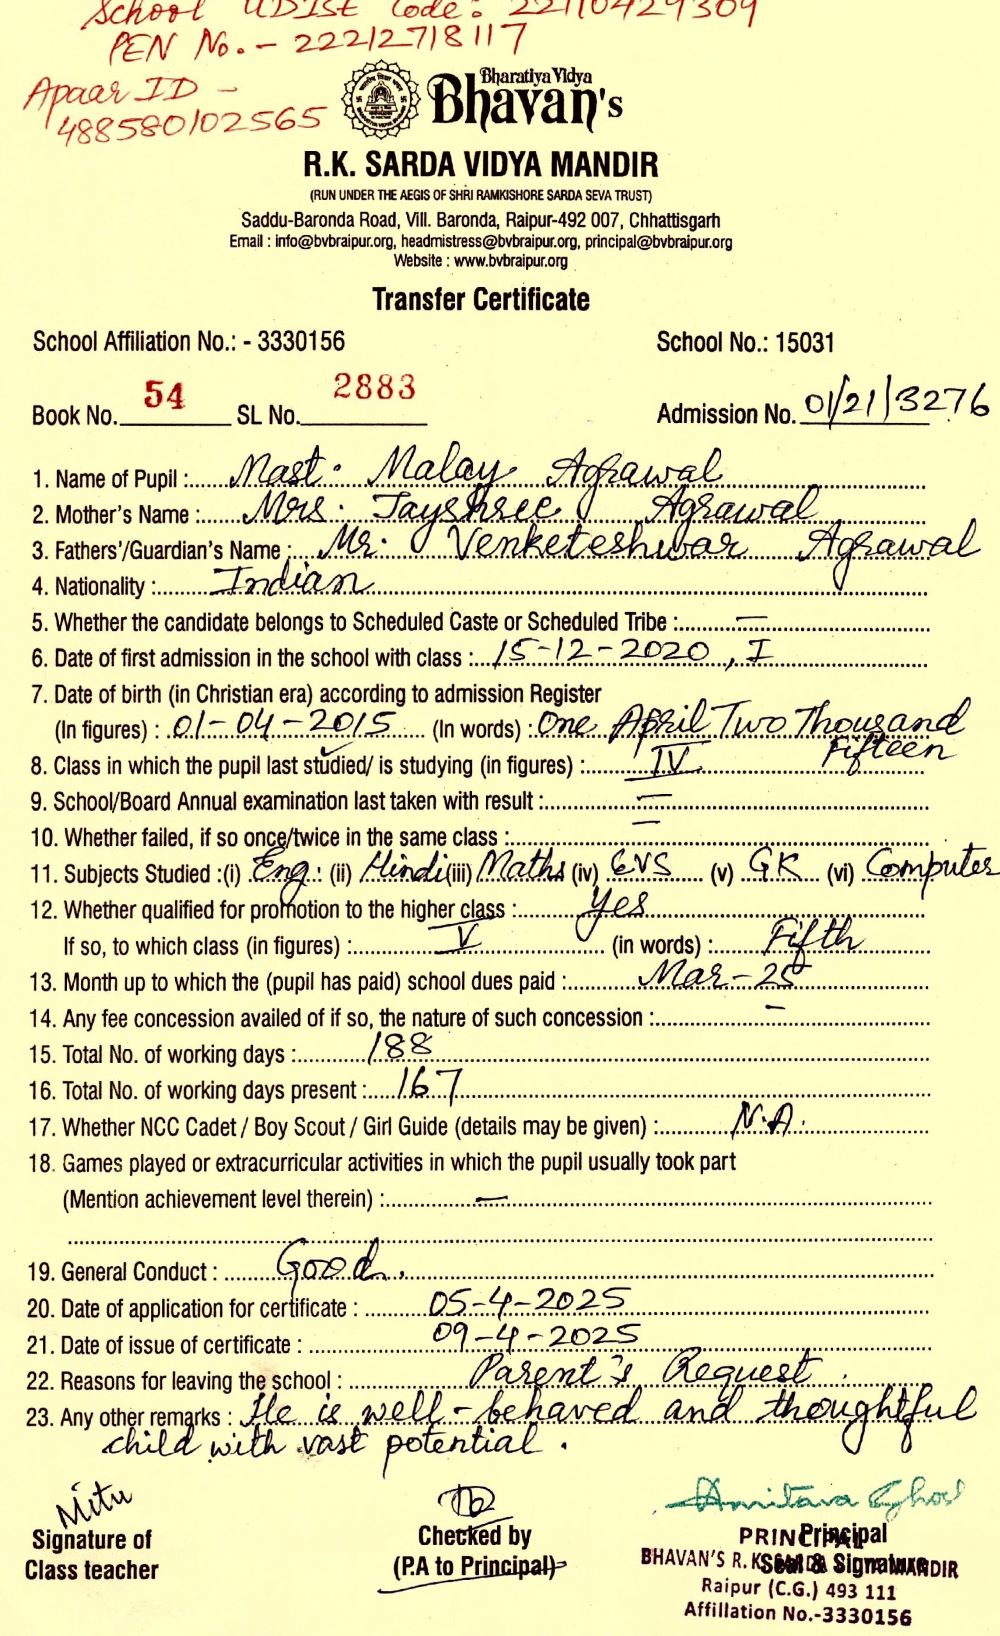 School UDISE Code: 22110429309
PEN No. - 22212718117
Apaar ID -
488580102565
Bharatiya Vidya
Bhavan's
R.K. SARDA VIDYA MANDIR
(RUN UNDER THE AEGIS OF SHRI RAMKISHORE SARDA SEVA TRUST)
Saddu-Baronda Road, Vill. Baronda, Raipur-492 007, Chhattisgarh
Email : info@bvbraipur.org, headmistress@bvbraipur.org, principal@bvbraipur.org
Website : www.bvbraipur.org
Transfer Certificate
School Affiliation No.: - 3330156 School No.: 15031
Book No. 54 SL No. 2883 Admission No. 01/21/3276
1. Name of Pupil : Mast. Malay Agrawal
2. Mother's Name : Mrs. Jayshree Agrawal
3. Fathers'/Guardian's Name : Mr. Venketeshwar Agrawal
4. Nationality : Indian
5. Whether the candidate belongs to Scheduled Caste or Scheduled Tribe : —
6. Date of first admission in the school with class : 15-12-2020, I
7. Date of birth (in Christian era) according to admission Register
(In figures) : 01-04-2015 (In words) : One April Two Thousand
Fifteen
8. Class in which the pupil last studied/ is studying (in figures) : IV
9. School/Board Annual examination last taken with result : —
10. Whether failed, if so once/twice in the same class : —
11. Subjects Studied :(i) Eng. (ii) Hindi (iii) Maths (iv) EVS (v) GK (vi) Computer
12. Whether qualified for promotion to the higher class : Yes
If so, to which class (in figures) : V (in words) : Fifth
13. Month up to which the (pupil has paid) school dues paid : Mar-25
14. Any fee concession availed of if so, the nature of such concession : —
15. Total No. of working days : 188
16. Total No. of working days present : 167
17. Whether NCC Cadet / Boy Scout / Girl Guide (details may be given) : N.A.
18. Games played or extracurricular activities in which the pupil usually took part
(Mention achievement level therein) : —
19. General Conduct : Good.
20. Date of application for certificate : 05-4-2025
21. Date of issue of certificate : 09-4-2025
22. Reasons for leaving the school : Parent's Request.
23. Any other remarks : He is well-behaved and thoughtful
child with vast potential.
Nitu
Amitava Ghosh
Signature of Checked by Principal
Class teacher (P.A to Principal) Seal & Signature
PRINCIPAL
BHAVAN'S R.K. SARDA VIDYA MANDIR
Raipur (C.G.) 493 111
Affillation No.-3330156